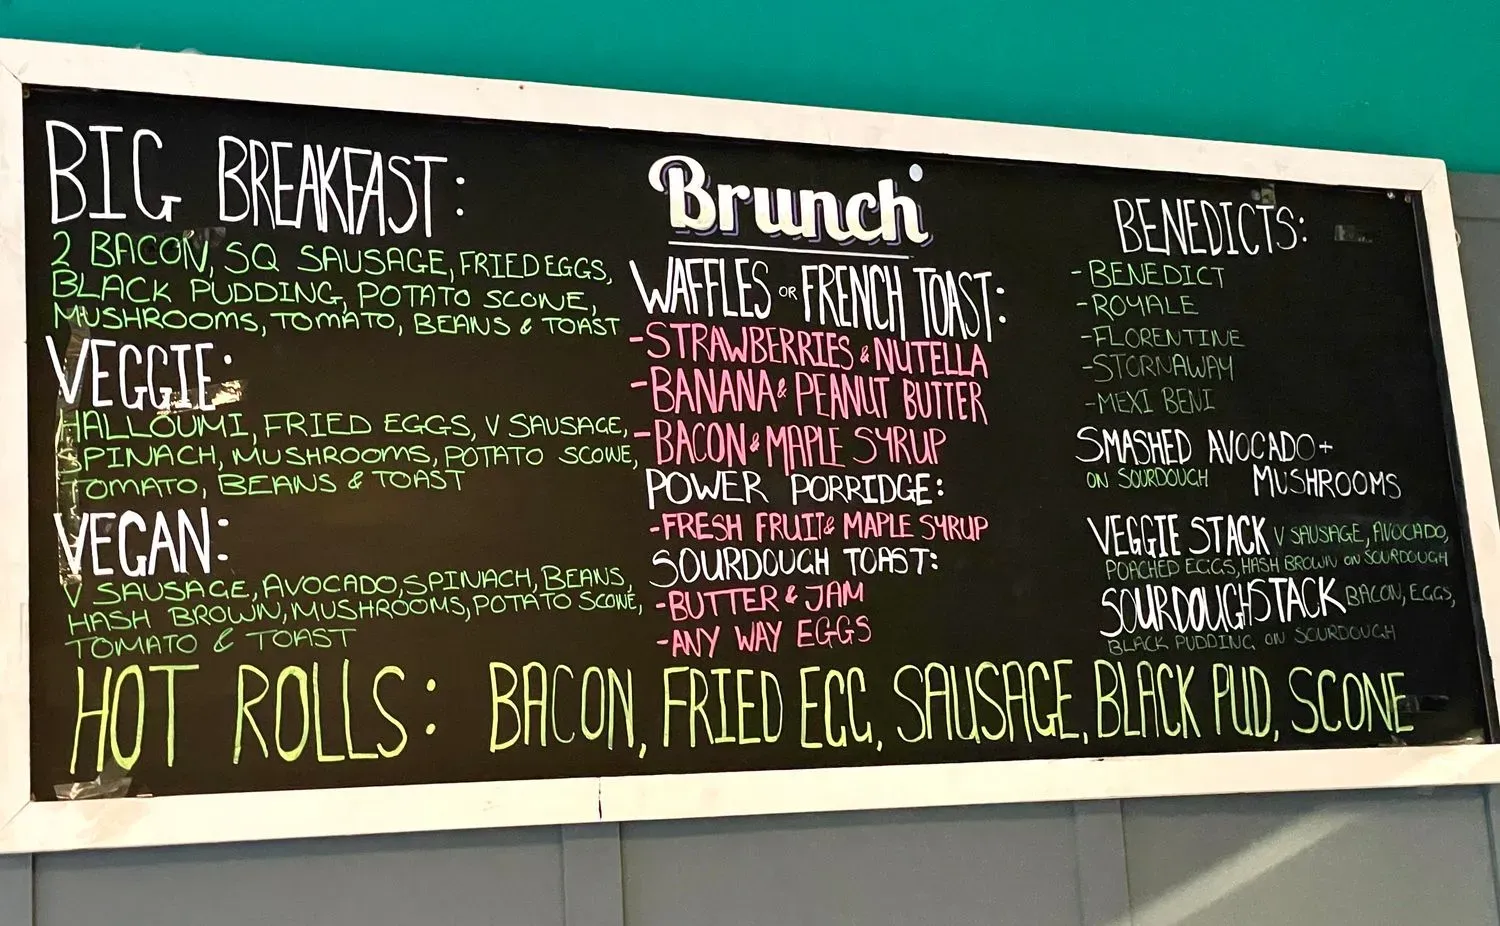 BIG BREAKFAST:
2 BACON, SQ SAUSAGE, FRIED EGGS,
BLACK PUDDING, POTATO SCONE,
MUSHROOMS, TOMATO, BEANS & TOAST
VEGGIE:
HALLOUMI, FRIED EGGS, V SAUSAGE,
SPINACH, MUSHROOMS, POTATO SCONE,
TOMATO, BEANS & TOAST
VEGAN:
V SAUSAGE, AVOCADO, SPINACH, BEANS,
HASH BROWN, MUSHROOMS, POTATO SCONE,
TOMATO & TOAST
Brunch
WAFFLES OR FRENCH TOAST:
-STRAWBERRIES & NUTELLA
-BANANA & PEANUT BUTTER
-BACON & MAPLE SYRUP
POWER PORRIDGE:
-FRESH FRUIT & MAPLE SYRUP
SOURDOUGH TOAST:
-BUTTER & JAM
-ANY WAY EGGS
BENEDICTS:
-BENEDICT
-ROYALE
-FLORENTINE
-STORNAWAY
-MEXI BENI
SMASHED AVOCADO +
ON SOURDOUGH MUSHROOMS
VEGGIE STACK V SAUSAGE, AVOCADO,
POACHED EGGS, HASH BROWN ON SOURDOUGH
SOURDOUGH STACK BACON, EGGS,
BLACK PUDDING ON SOURDOUGH
HOT ROLLS: BACON, FRIED EGG, SAUSAGE, BLACK PUD, SCONE